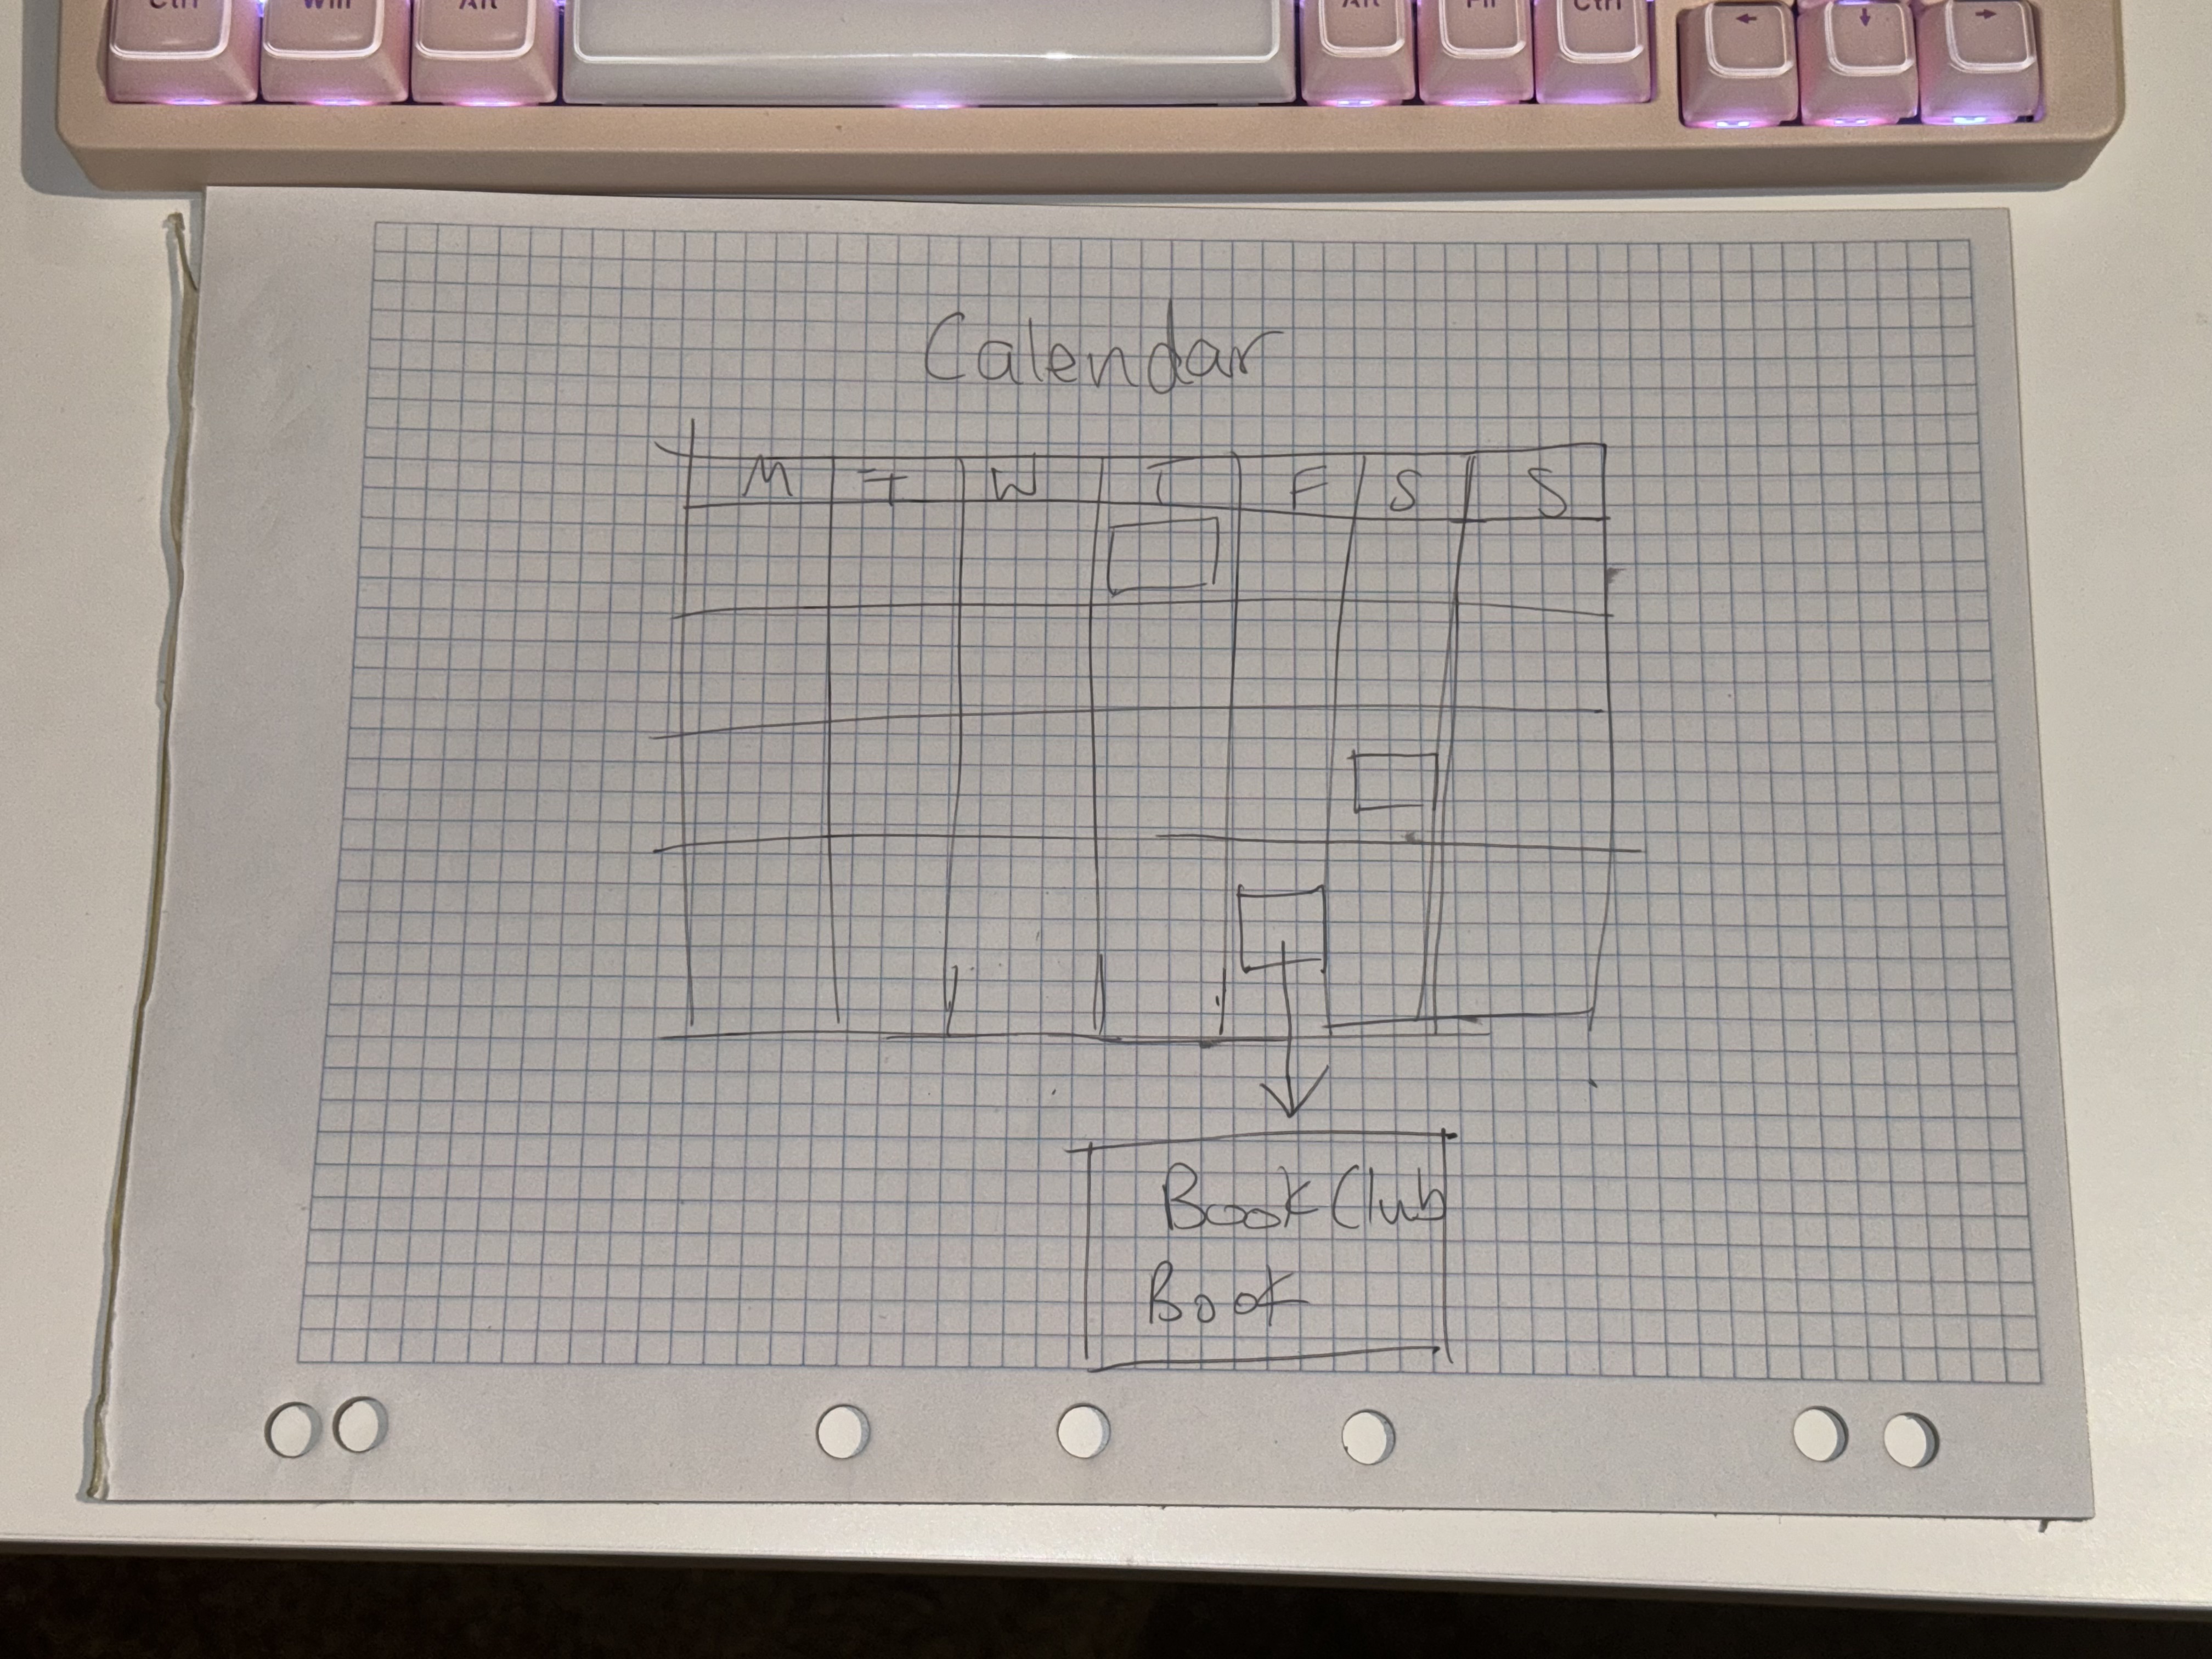 Ctrl Win Alt Alt Fn Ctrl
Calendar
M T W T F S S
Book Club
Book